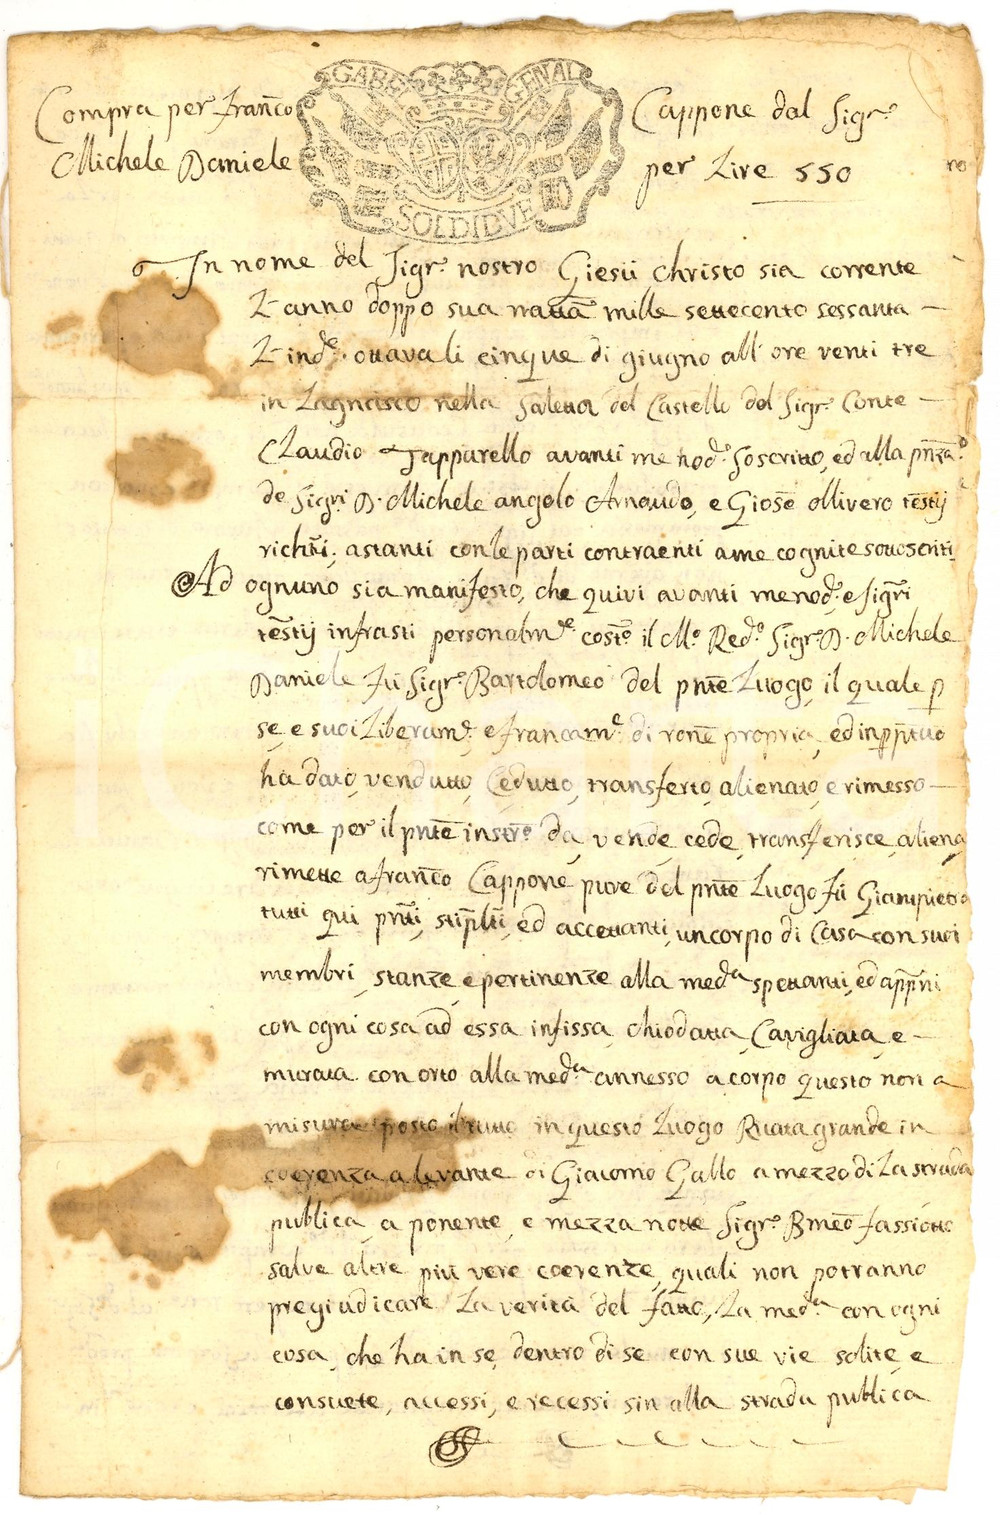 Compra per Franc̄o
Cappone dal Sigr.ᵉ
Michele Daniele
per Lire 550
GABE GENAL
SOLDI DVE
no
In nome del Sigr.ᵉ nostro Giesù Christo sia corrente
L'anno doppo sua nattā mille settecento sessanta –
L'indᵉ. ottava li cinque di giugno all'ore venti tre
in Lagnasco nella Saletta del Castello del Sigr.ᵉ Conte –
Claudio Tapparello avanti me nodᵒ. soscritto, ed alla pn̄zaᵒ
de Sigri D. Michele angelo Arnaudo, e Giosē Ollivero tēstij
richti; astanti con le parti contraenti a me cognite sottoscriti
Ad ognuno sia manifesto, che quivi avanti me nodᵒ. e Sigr̄i
tēstij infrasti personalmᵗᵉ costᵒ il Mᵒ Redᵒ Sigrᵉ D. Michele
Daniele fù Sigrᵉ Bartolomeo del pn̄te Luogo, il quale p
se, e suoi Liberamᵗᵉ. e francamᵗᵉ di ronē propria, ed in pp̄tuo
ha dato, vendutto, Cedutto, transferto, alienato, e rimesso –
come per il pn̄te instrᵒ dà, vende, cede, transferisce, aliena
rimette a franc̄o Cappone pure del pn̄te Luogo fù Giampietro
tutti qui pn̄ti, stip̄lti, ed accettanti, un corpo di Casa con suoi
membri, stanze, e pertinenze alla medᵃ spettanti, ed app̄ni
con ogni cosa ad essa infissa, chiodatta, Cavigliata, e –
murata con orto alla medᵃ annesso a corpo questo non a
misura posto il tutto in questo Luogo Ruata grande in
coerenza a levante di Giacomo Gallo a mezzo di La strada
publica, a ponente, e mezza notte Sigrᵉ Bmeō fassiotto
salve altre più vere coerenze, quali non potranno
pregiudicare La verità del fatto, La medᵃ con ogni
cosa, che ha in se, dentro di se con sue vie solite, e
consuete, accessi, e recessi sin alla strada publica